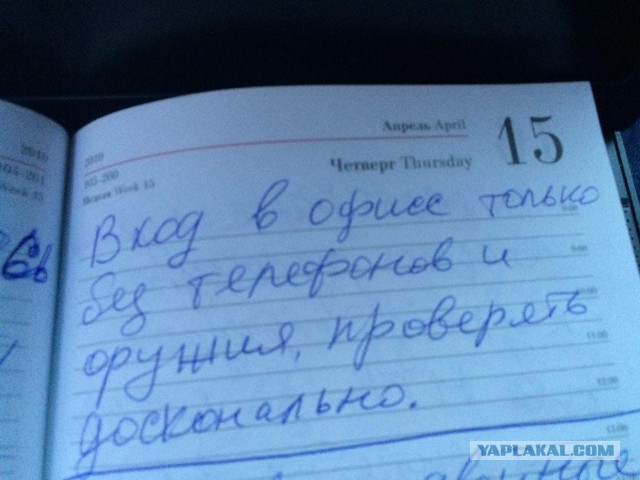 Апрель April
15
2010
Четверг Thursday
105-260
Неделя Week 15
Вход в офис только
без телефонов и
оружия, проверять
досконально.
2010
104-261
9:00
10:00
11:00
12:00
13:00
YAPLAKAL.COM